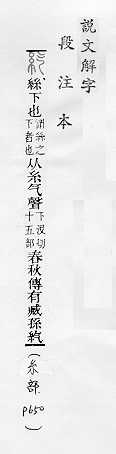 說文解字
段注本
紇絲下也謂絲之下者也从糸气聲下没切十五部春秋傳有臧孫紇(糸部 p650)